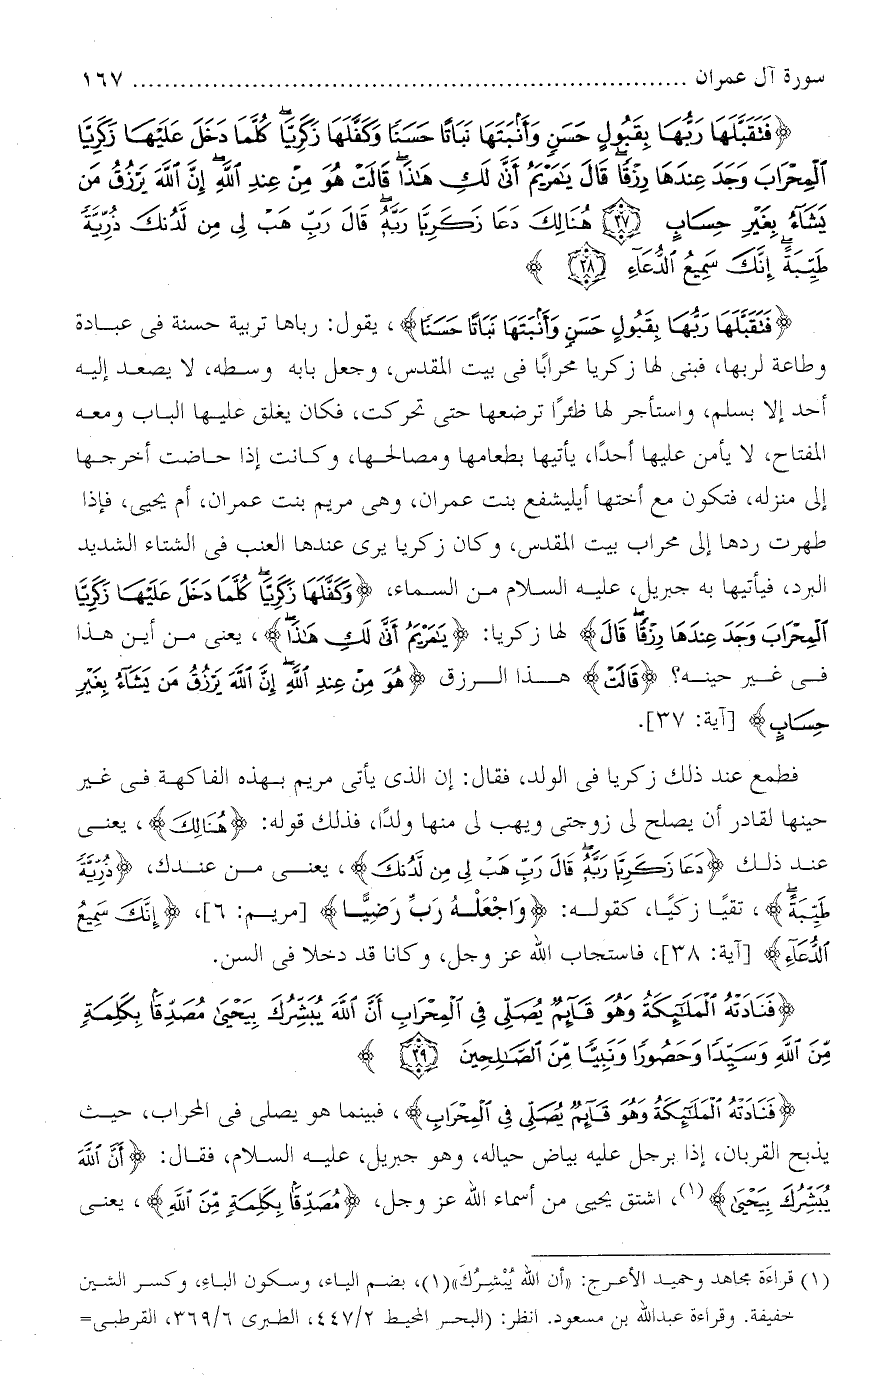 سورة آل عمران ........................................................................ ١٦٧
﴿فَتَقَبَّلَهَا رَبُّهَا بِقَبُولٍ حَسَنٍ وَأَنۢبَتَهَا نَبَاتًا حَسَنًا وَكَفَّلَهَا زَكَرِيَّاۖ كُلَّمَا دَخَلَ عَلَيْهَا زَكَرِيَّا
ٱلْمِحْرَابَ وَجَدَ عِندَهَا رِزْقًاۖ قَالَ يَٰمَرْيَمُ أَنَّىٰ لَكِ هَٰذَاۖ قَالَتْ هُوَ مِنْ عِندِ ٱللَّهِۖ إِنَّ ٱللَّهَ يَرْزُقُ مَن
يَشَآءُ بِغَيْرِ حِسَابٍ ﴿٣٧﴾ هُنَالِكَ دَعَا زَكَرِيَّا رَبَّهُۥۖ قَالَ رَبِّ هَبْ لِى مِن لَّدُنكَ ذُرِّيَّةً
طَيِّبَةًۖ إِنَّكَ سَمِيعُ ٱلدُّعَآءِ ﴿٣٨﴾ ﴾
﴿فَتَقَبَّلَهَا رَبُّهَا بِقَبُولٍ حَسَنٍ وَأَنۢبَتَهَا نَبَاتًا حَسَنًا﴾، يقول: رباها تربية حسنة فى عبادة
وطاعة لربها، فبنى لها زكريا محرابًا فى بيت المقدس، وجعل بابه وسطه، لا يصعد إليه
أحد إلا بسلم، واستأجر لها ظئرًا ترضعها حتى تحركت، فكان يغلق عليها الباب ومعه
المفتاح، لا يأمن عليها أحدًا، يأتيها بطعامها ومصالحها، وكانت إذا حاضت أخرجها
إلى منزله، فتكون مع أختها أيليشفع بنت عمران، وهى مريم بنت عمران، أم يحيى، فإذا
طهرت ردها إلى محراب بيت المقدس، وكان زكريا يرى عندها العنب فى الشتاء الشديد
البرد، فيأتيها به جبريل، عليه السلام من السماء، ﴿وَكَفَّلَهَا زَكَرِيَّاۖ كُلَّمَا دَخَلَ عَلَيْهَا زَكَرِيَّا
ٱلْمِحْرَابَ وَجَدَ عِندَهَا رِزْقًاۖ قَالَ﴾ لها زكريا: ﴿يَٰمَرْيَمُ أَنَّىٰ لَكِ هَٰذَاۖ﴾، يعنى من أين هذا
فى غير حينه؟ ﴿قَالَتْ﴾ هذا الرزق ﴿هُوَ مِنْ عِندِ ٱللَّهِۖ إِنَّ ٱللَّهَ يَرْزُقُ مَن يَشَآءُ بِغَيْرِ
حِسَابٍ﴾ [آية: ٣٧].
فطمع عند ذلك زكريا فى الولد، فقال: إن الذى يأتى مريم بهذه الفاكهة فى غير
حينها لقادر أن يصلح لى زوجتى ويهب لى منها ولدًا، فذلك قوله: ﴿هُنَالِكَ﴾، يعنى
عند ذلك ﴿دَعَا زَكَرِيَّا رَبَّهُۥۖ قَالَ رَبِّ هَبْ لِى مِن لَّدُنكَ﴾، يعنى من عندك، ﴿ذُرِّيَّةً
طَيِّبَةًۖ﴾، تقيًا زكيًا، كقوله: ﴿وَاجْعَلْهُ رَبِّ رَضِيًّا﴾ [مريم: ٦]، ﴿إِنَّكَ سَمِيعُ
ٱلدُّعَآءِ﴾ [آية: ٣٨]، فاستجاب الله عز وجل، وكانا قد دخلا فى السن.
﴿فَنَادَتْهُ ٱلْمَلَٰٓئِكَةُ وَهُوَ قَآئِمٌ يُصَلِّى فِى ٱلْمِحْرَابِ أَنَّ ٱللَّهَ يُبَشِّرُكَ بِيَحْيَىٰ مُصَدِّقًۢا بِكَلِمَةٍ
مِّنَ ٱللَّهِ وَسَيِّدًا وَحَصُورًا وَنَبِيًّا مِّنَ ٱلصَّٰلِحِينَ ﴿٣٩﴾ ﴾
﴿فَنَادَتْهُ ٱلْمَلَٰٓئِكَةُ وَهُوَ قَآئِمٌ يُصَلِّى فِى ٱلْمِحْرَابِ﴾، فبينما هو يصلى فى المحراب، حيث
يذبح القربان، إذا برجل عليه بياض حياله، وهو جبريل، عليه السلام، فقال: ﴿أَنَّ ٱللَّهَ
يُبَشِّرُكَ بِيَحْيَىٰ﴾(١)، اشتق يحيى من أسماء الله عز وجل، ﴿مُصَدِّقًۢا بِكَلِمَةٍ مِّنَ ٱللَّهِ﴾، يعنى
(١) قراءة مجاهد وحميد الأعرج: «أن الله يُبْشِرُكَ»(١)، بضم الياء، وسكون الباءِ، وكسر الشين
خفيفة. وقراءة عبدالله بن مسعود. انظر: (البحر المحيط ٤٤٧/٢، الطبرى ٣٦٩/٦، القرطبى=